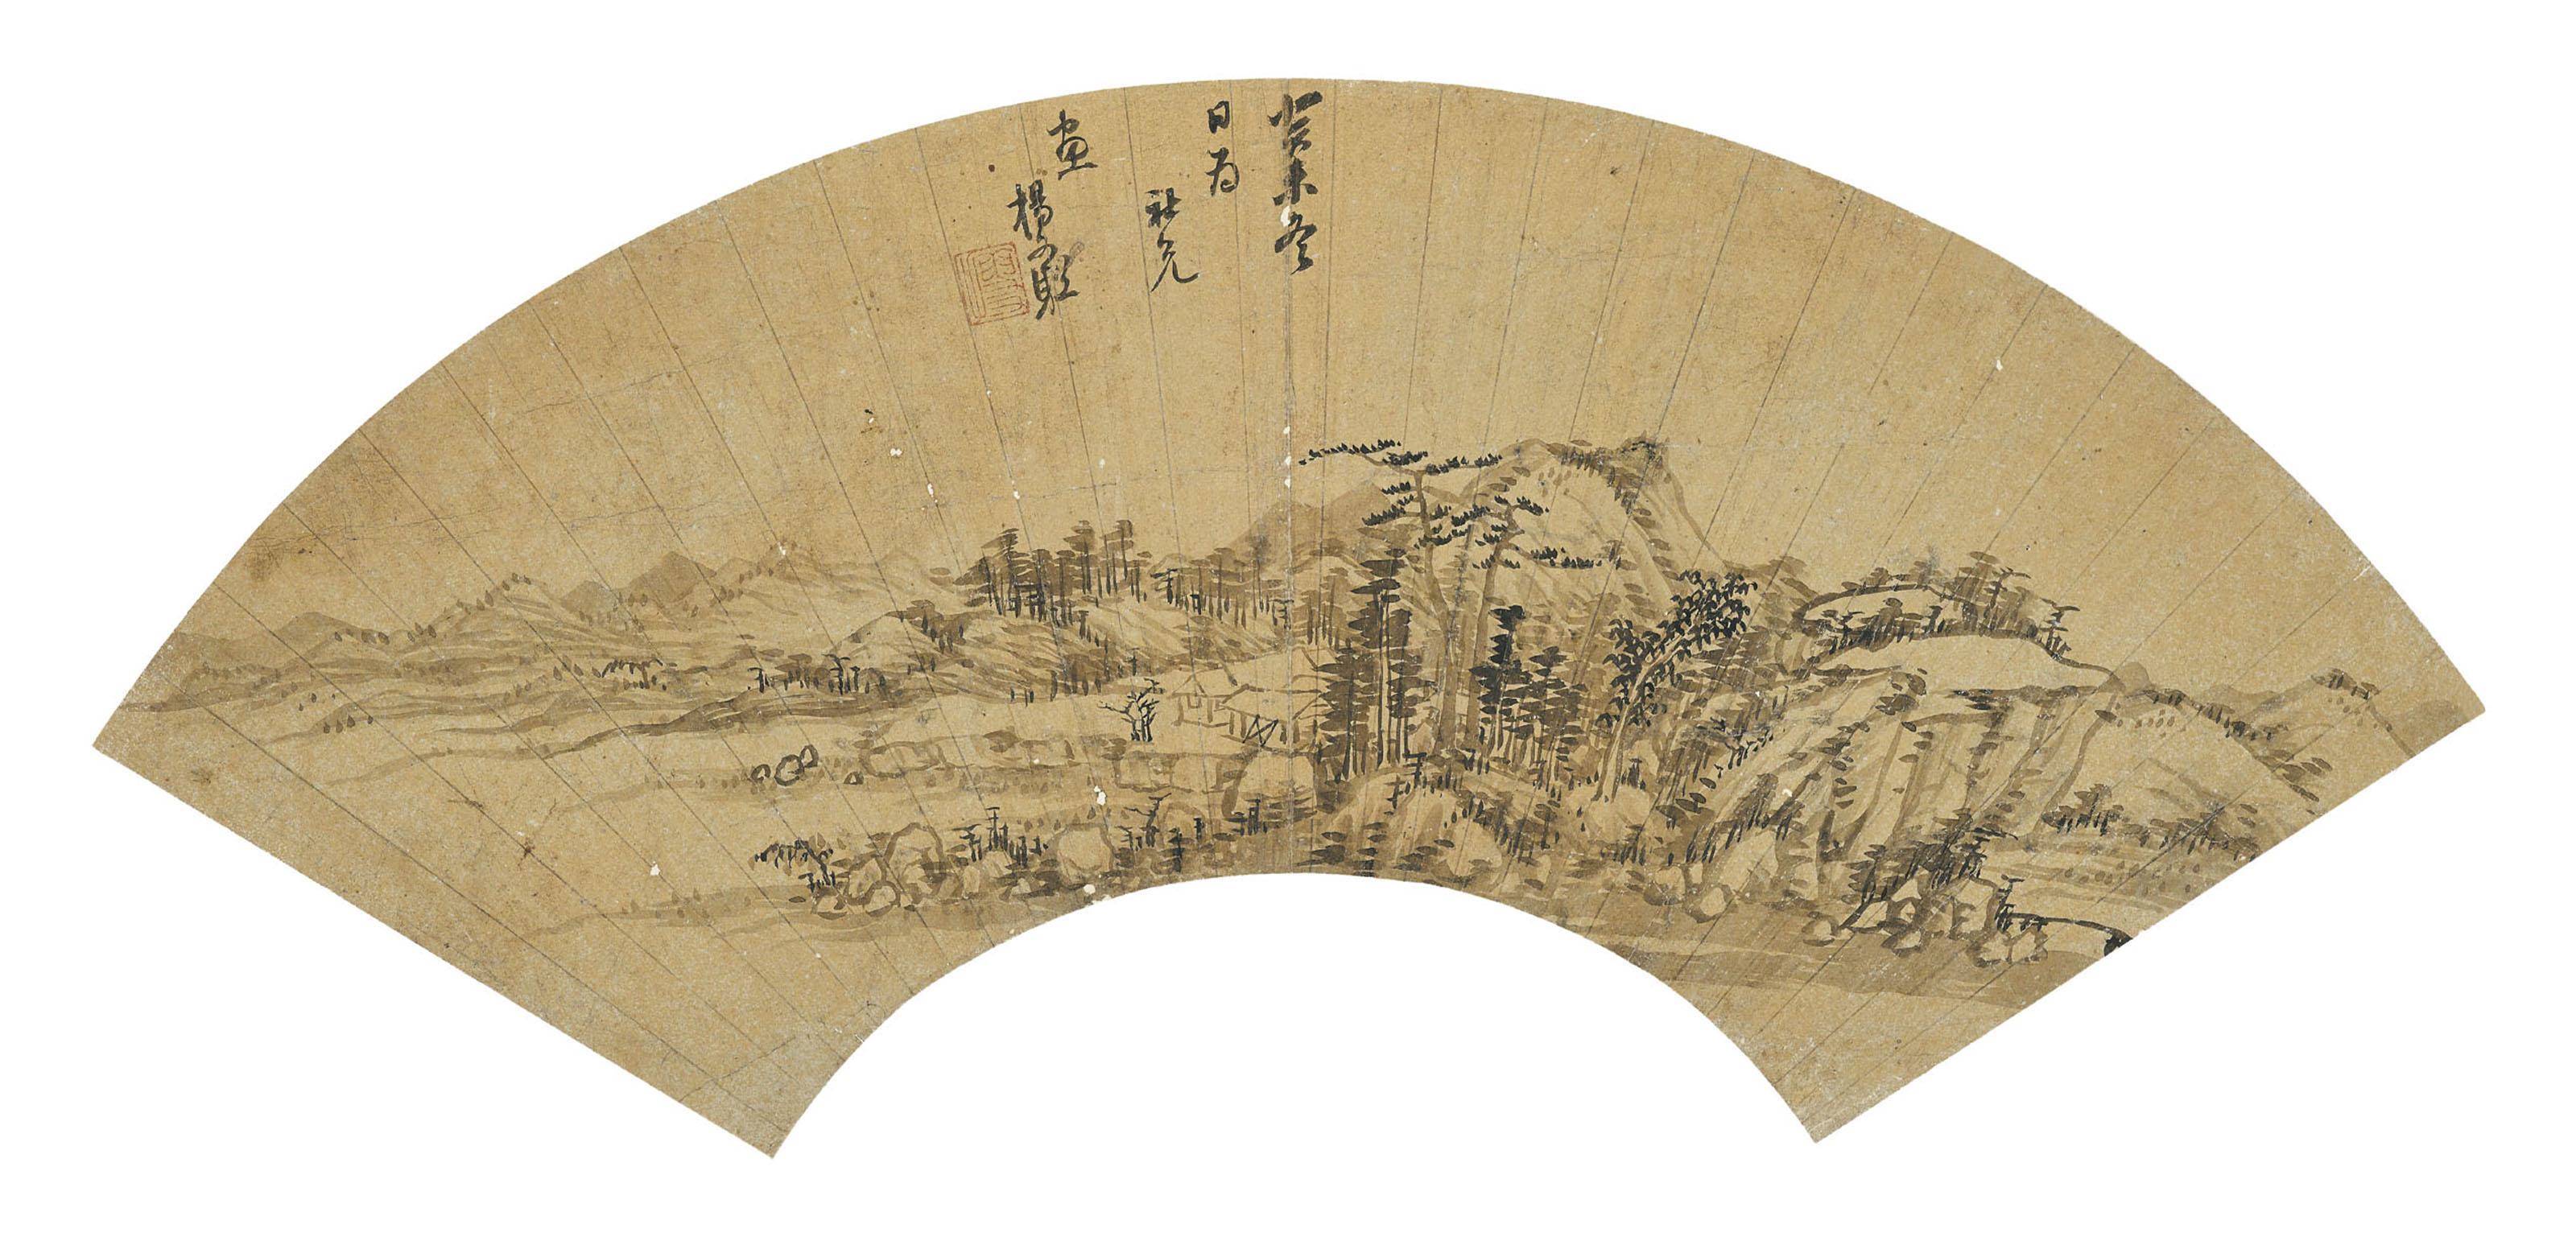 癸未冬
日為
社兄
畫
楊文驄